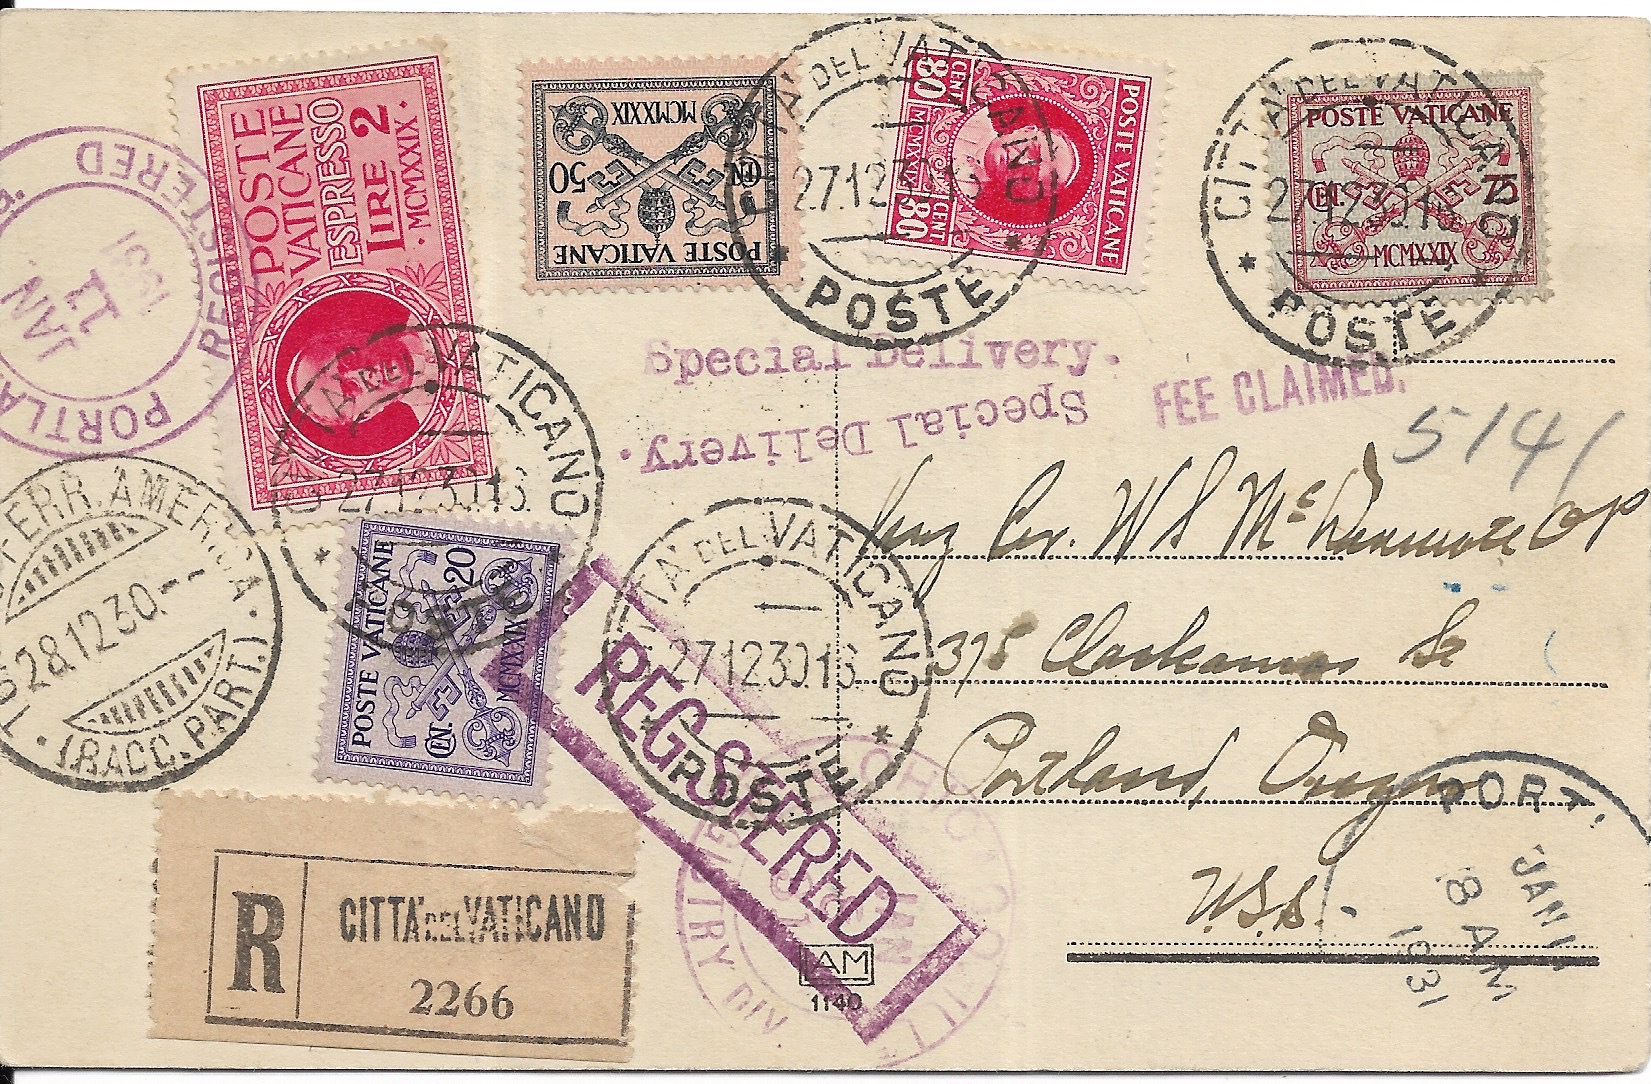 POSTE
VATICANE
ESPRESSO
LIRE 2
·MCMXXIX·
POSTE VATICANE
CENT. 50
MCMXXIX
POSTE VATICANE
80 CENT
MCMXXIX
80 CENT
POSTE VATICANE
CENT. 75
MCMXXIX
POSTE VATICANE
CENT. 20
MCMXXIX
CITTA' DEL VATICANO
27.12.30.16
POSTE
CITTA' DEL VATICANO
27.12.30.16
POSTE
CITTA' DEL VATICANO
27.12.30.16.
CITTA' DEL VATICANO
27.12.30.16.
POSTE
REGISTERED
JAN
1931
PORTLA
REGISTERED
Special Delivery.
Special Delivery.
FEE CLAIMED.
5141
FERR. AMERICA
28.12.30.--
(RACC. PART.)
REGISTERED
Rev. W S Mc
375 Clackamas St
Portland, Oregon
U.S.A.
CHICAGO, ILL
JAN
REGISTRY DIV
PORT.
JAN
8 AM
1931
R
CITTÀ DEL VATICANO
2266
AM
1140